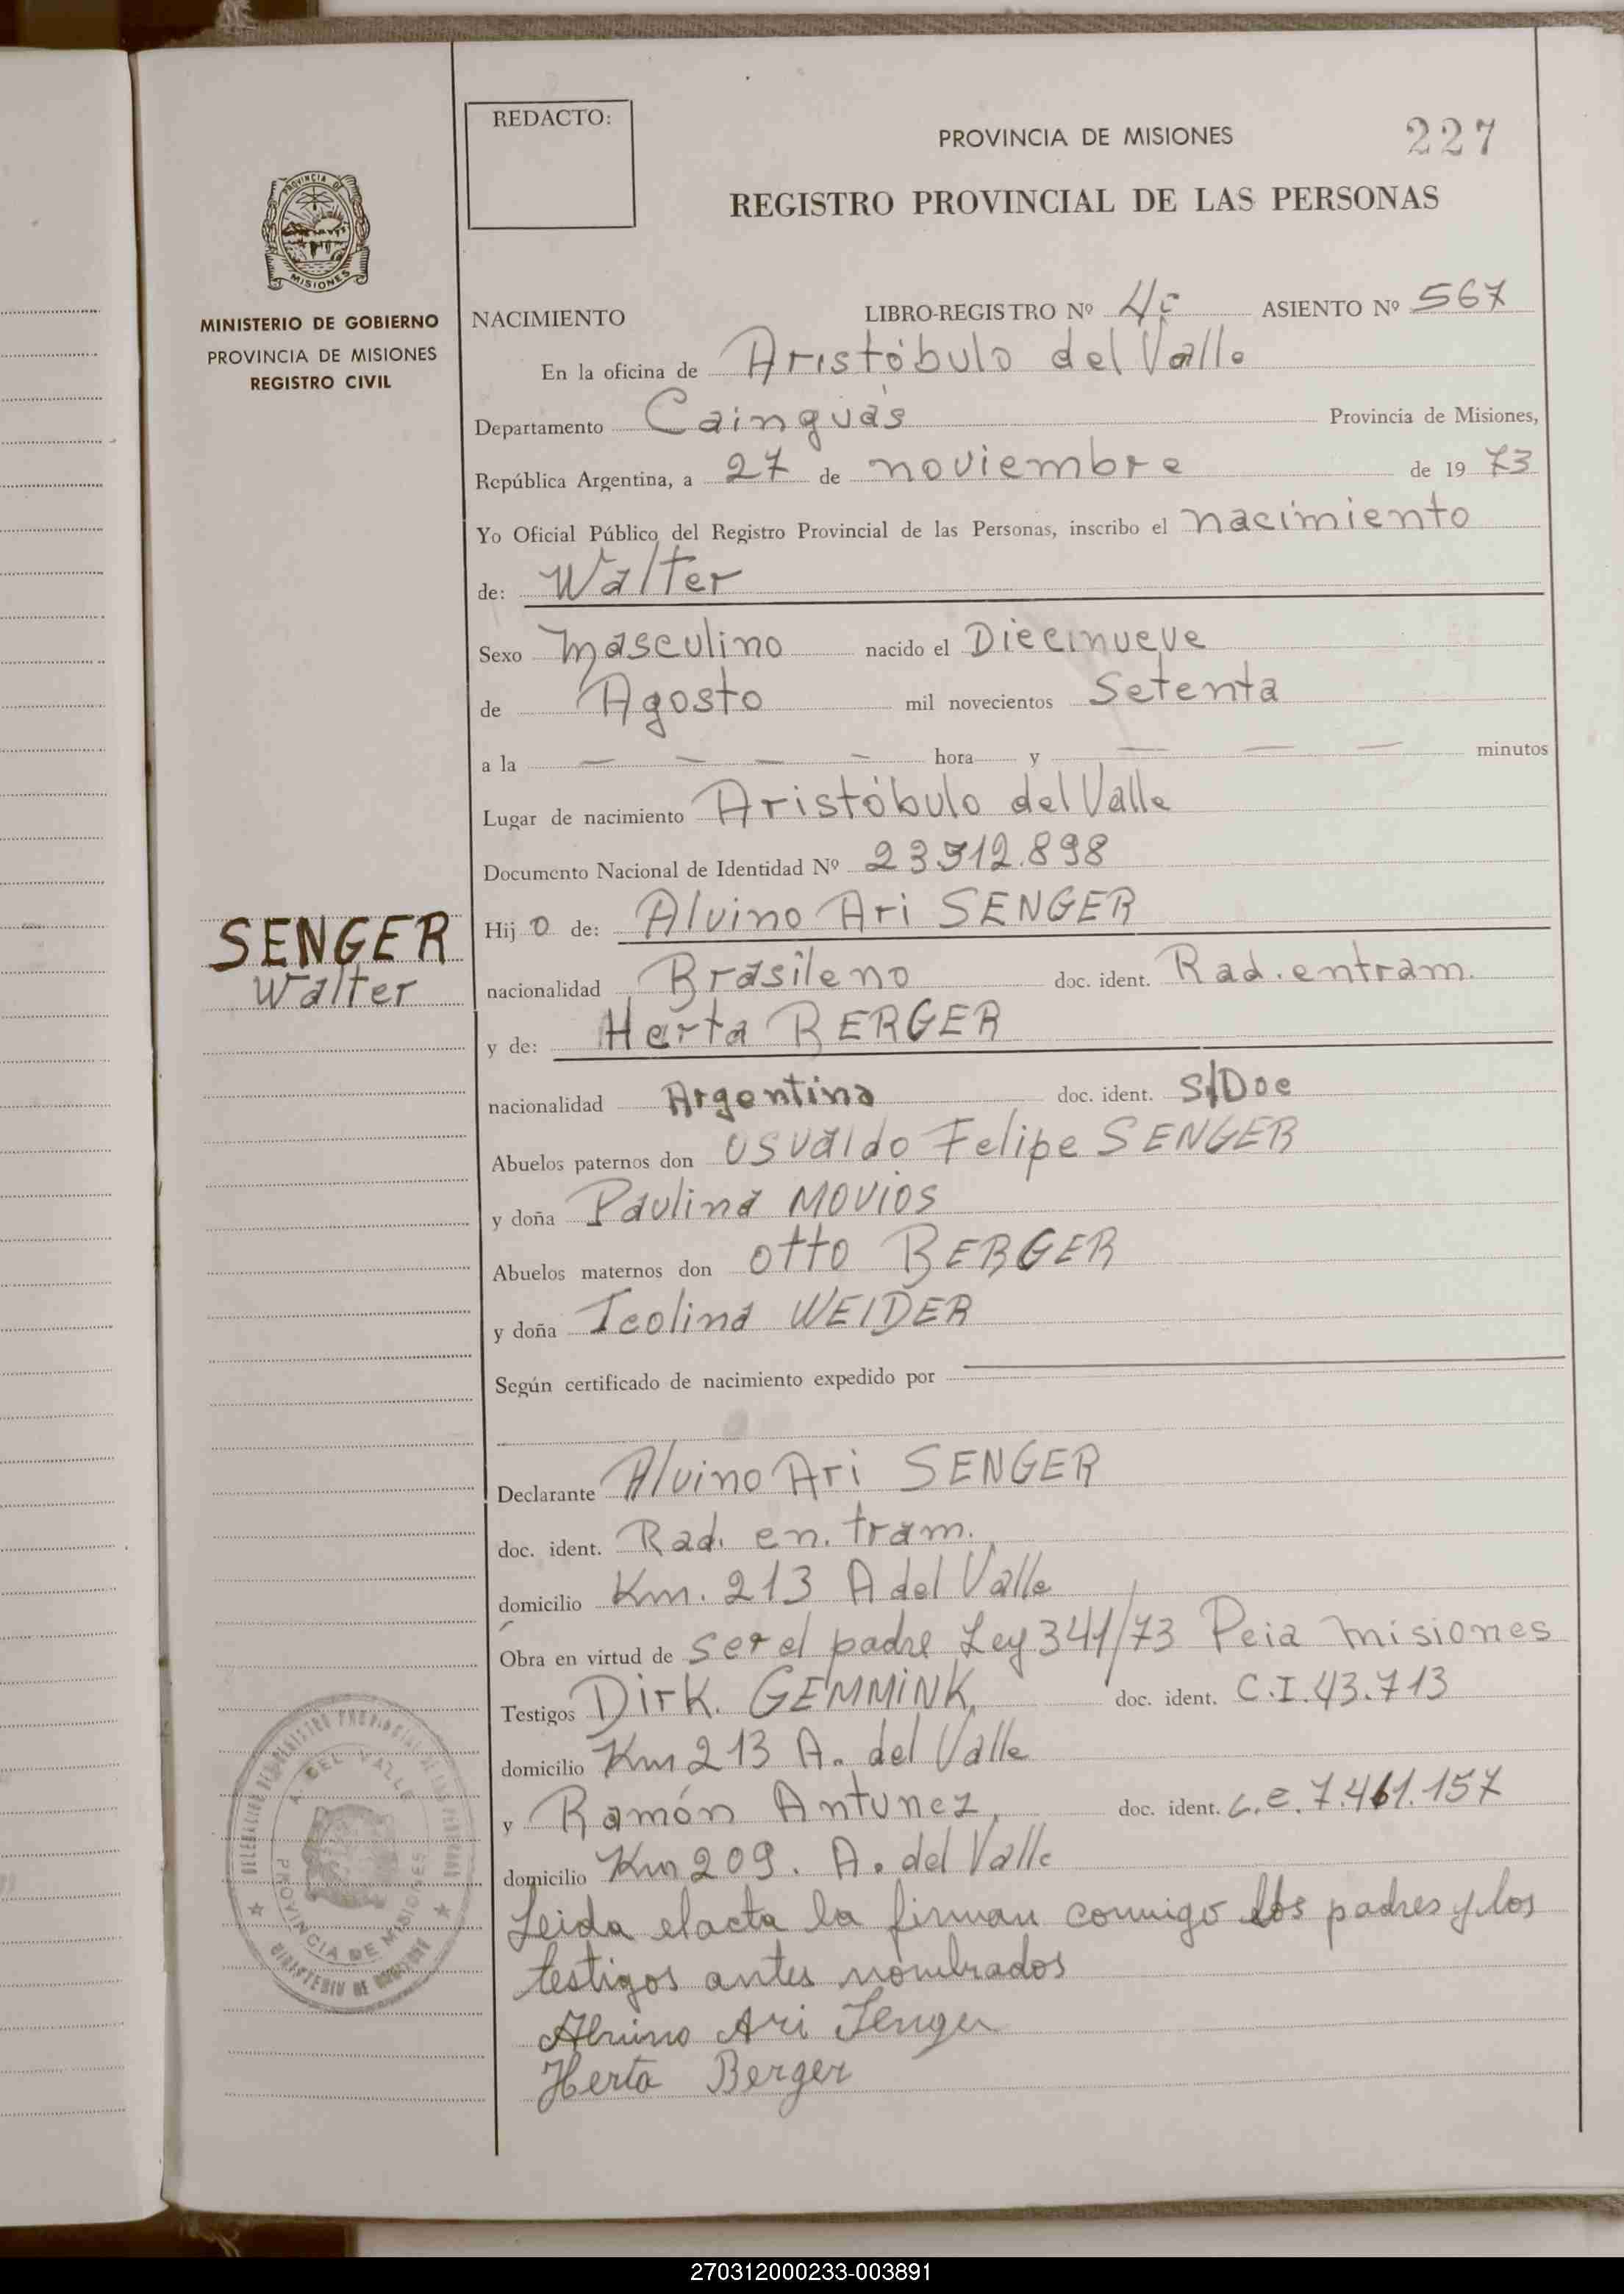 REDACTO:
PROVINCIA DE MISIONES
227
REGISTRO PROVINCIAL DE LAS PERSONAS
PROVINCIA DE
MISIONES
MINISTERIO DE GOBIERNO
PROVINCIA DE MISIONES
REGISTRO CIVIL
NACIMIENTO LIBRO-REGISTRO Nº 4c ASIENTO Nº 567
En la oficina de Aristóbulo del Valle
Departamento Cainguás Provincia de Misiones,
República Argentina, a 27 de noviembre de 19 73
Yo Oficial Público del Registro Provincial de las Personas, inscribo el nacimiento
de: Walter
Sexo Masculino nacido el Diecinueve
de Agosto mil novecientos Setenta
a la — — — — hora y — — — minutos
Lugar de nacimiento Aristóbulo del Valle
Documento Nacional de Identidad Nº 23.912.898
SENGER
Walter
Hij o de: Alvino Ari SENGER
nacionalidad Brasileno doc. ident. Rad. entram.
y de: Herta BERGER
nacionalidad Argentina doc. ident. S/Doc
Abuelos paternos don Osvaldo Felipe SENGER
y doña Paulina MOVIOS
Abuelos maternos don Otto BERGER
y doña Teolina WEIDER
Según certificado de nacimiento expedido por
Declarante Alvino Ari SENGER
doc. ident. Rad. en. tram.
domicilio Km. 213 A del Valle
Obra en virtud de ser el padre Ley 341/73 Pcia Misiones
Testigos Dirk. GEMMINK, doc. ident. C.I. 43.713
domicilio Km 213 A. del Valle
y Ramón Antunez, doc. ident. L.E. 7.461.157
domicilio Km 209. A. del Valle
Leida el acta la firman conmigo los padres y los
testigos antes nombrados
Alvino Ari Senger
Herta Berger
DELEGACION DE REGISTRO PROVINCIAL DE LAS PERSONAS
A. DEL VALLE
PROVINCIA DE MISIONES
MINISTERIO DE GOBIERNO
270312000233-003891